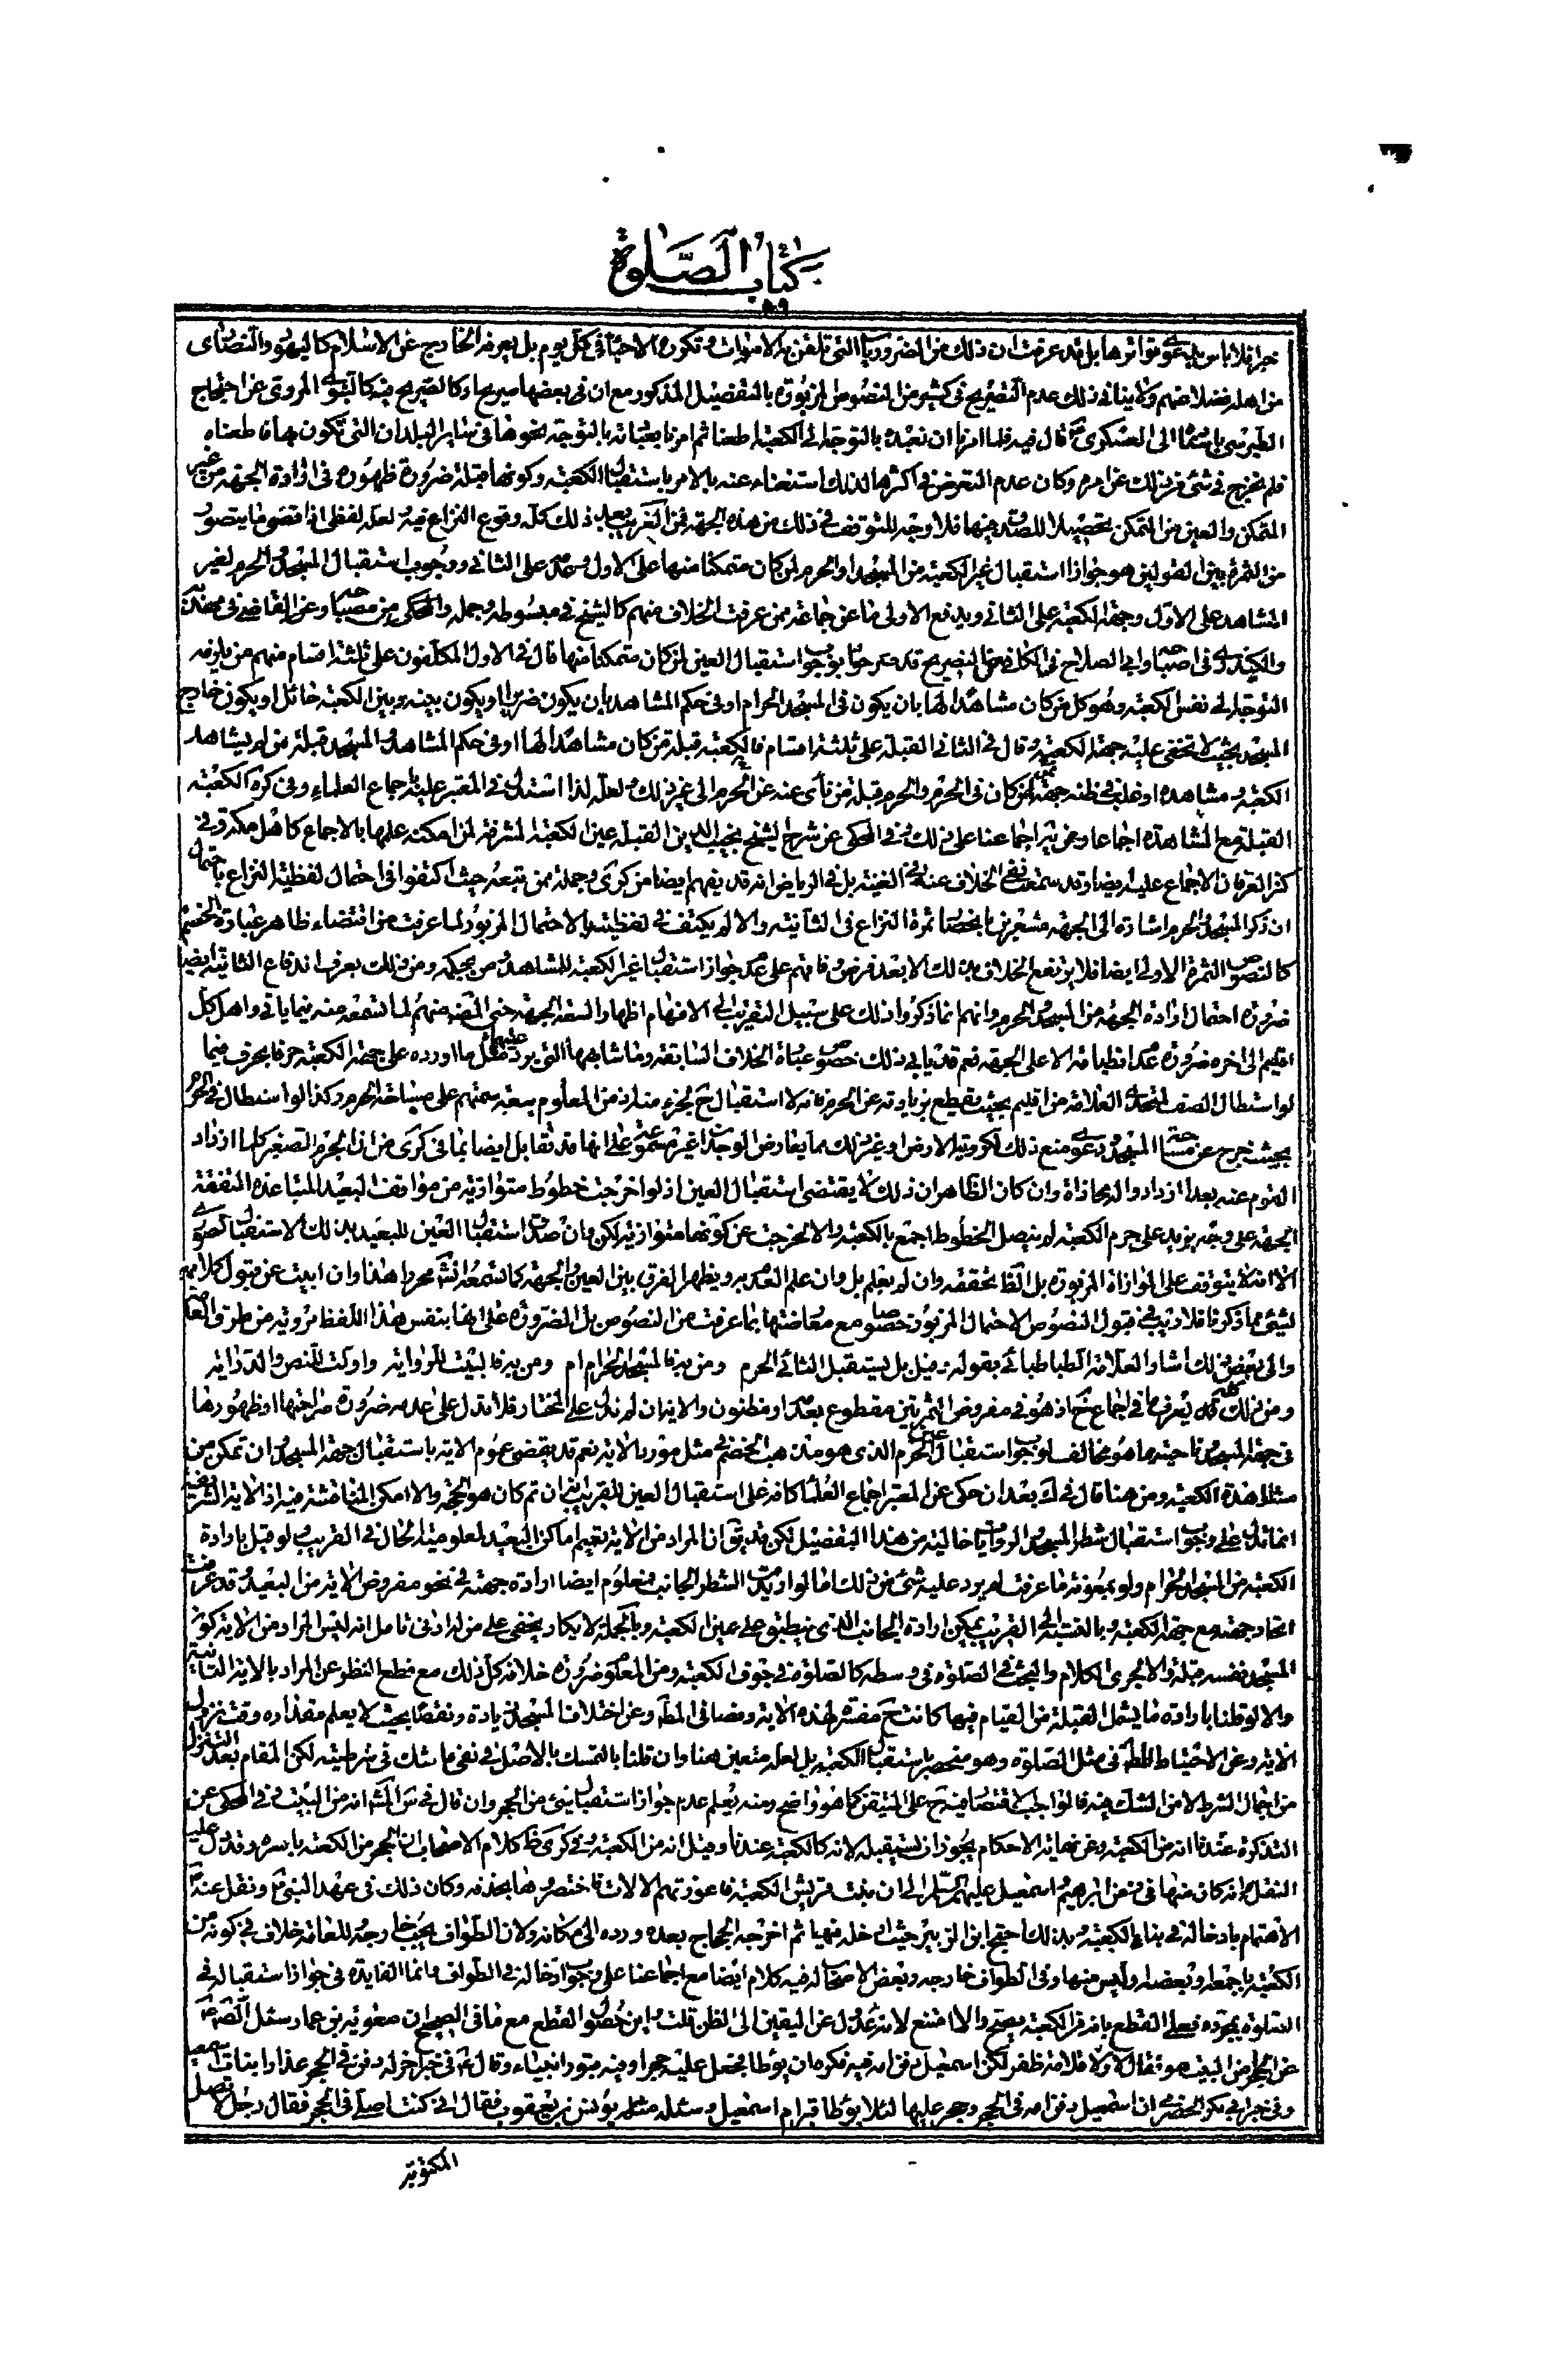 كتاب الصلوة
خبرا فلا باس بدعوى تواترها بل قد عرفت ان ذلك من الضروريات التى تلقن به الاموات وتكرره الاحياء فى كل يوم بل يعرفه الخارج عن الاسلام كاليهود والنصارى
من اهله فضلا عنهم ولا ينافى ذلك عدم التصريح فى كثير من النصوص المزبورة بالتفصيل المذكور مع ان فى بعضها صريحا وكالصريح فيه كالنبوى المروى عن احتجاج
الطبرسى الى العسكرى قال فيه فلما امرنا ان نعبده بالتوجه الى الكعبة اطعنا ثم امرنا بعبادته بالتوجه نحوها فى سائر البلدان التى تكون بها فاطعناه
فلم نخرج فى شئ من ذلك عن امره وكان عدم التعرض فى اكثرها لذلك استغناء عنه بالامر باستقبال الكعبة وكونها قبلة ضرورة ظهوره فى ارادة الجهة من غير
المتمكن والعين من المتمكن تحصيلا للصدق فيها فلا وجه للتوقف فى ذلك من هذه الجهة فمن الغريب بعد ذلك كله وقوع النزاع فيه لعله لفظى اذ اقصى ما يتصور
من الثمرة بين القولين هو جواز استقبال غير الكعبة من المسجد او الحرم لمن كان متمكنا منها على الاول وعدمه على الثانى ووجوب استقبال المسجد والحرم لغير
المشاهد على الاول وجهة الكعبة على الثانى ويدفع الاولى ما عن جماعة ممن عرفت الخلاف منهم كالشيخ فى مبسوطه وجمله والمحكى من مصباحه وعن القاضى فى مهذبه
والكيدرى فى اصباحه وابى الصلاح فى الكافى من التصريح قد صرحا بوجوب استقبال العين لمن كان متمكنا منها قال فى الاول المكلفون على ثلثة اقسام منهم من يلزمه
التوجه الى نفس الكعبة وهو كل من كان مشاهدا لها بان يكون فى المسجد الحرام او فى حكم المشاهد بان يكون ضريرا ويكون بينه وبين الكعبة حائل او يكون خارج
المسجد بحيث لا تخفى عليه جهة الكعبة وقال فى الثانى القبلة على ثلثة اقسام فالكعبة قبلة من كان مشاهدا لها او فى حكم المشاهد والمسجد قبلة من لم يشاهد
الكعبة وشاهده او غلب فى ظنه جهته ممن كان فى الحرم والحرم قبلة من نأى عنه عن الحرم الى غير ذلك ولعله لذا استدل فى المعتبر عليه باجماع العلماء وفى كرى الكعبة
القبلة مع المشاهدة اجماعا وعن اجماعنا على ذلك وفى المحكى عن شرح الشيخ نجيب الدين القبلة عين الكعبة المشرفة لمن امكنه علمها بالاجماع كاهل مكة وفى
كنز العرفان الاجماع عليه ايضا وقد سمعت نفى الخلاف عنه فى الغنية بل فى الرياض انه قد يفهم ايضا من كرى وجملة ممن تبعه حيث اكتفوا فى احتمال لفظية النزاع باحتمال
ان ذكر المسجد والحرم اشارة الى الجهة مشعرين بانحصار ثمرة النزاع فى الثانية والا لم يكتف فى لفظيته بالاحتمال المزبور لما عرفت من اقتضاء ظاهر عبارة الخصم
كالنصوص الثمرة الاولى ايضا فلا يرتفع الخلاف بذلك الا بعد فرض وفاقهم على عدم جواز استقبال غير الكعبة للمشاهد ومن بحكمه ومن ذلك يعرف اندفاع الثانية ايضا
ضرورة احتمال ارادة الجهة من المسجد والحرم وانهم انما ذكروا ذلك على سبيل التقريب الى الافهام اظهارا لسعة الجهة حتى المص منهم لما تسمعه منه فيما ياتى واهل كل
اقليم الى اخره ضرورة عدم انطباقه الا على الجهة نعم قد يابى ذلك خصوص عبارة الخلاف السابقة وما شابهها التى يرد عليها مثل ما اورده على جهة الكعبة حرفا بحرف فيما
لو استطال الصف المتحدة العلامة من اقليم بحيث يقطع بزيادته عن الحرم فانه لا استقبال ح لجزء منه اذ من المعلوم سعة سمتهم على مساحة الحرم وكذا لو استطال فى الحرم
بحيث خرج عن مساحة المسجد ودعوى منع ذلك لكروية الارض او غير ذلك مما يعارض الوجدان غير مسموعة على انها قد تقابل ايضا بما فى كرى من ان الجرم الصغير كلما ازداد
القوم عنه بعدا ازدادوا له محاذاة وان كان الظاهر ان ذلك لا يقتضى استقبال العين اذ لو اخرجت خطوط متوازية من مواقف البعيد المتباعدة المتفقة
الجهة على وجه يزيد على جرم الكعبة لم يتصل الخطوط اجمع بالكعبة والا لخرجت عن كونها متوازية لكن وان صدق استقبال العين للبعيد بذلك الاستقبال الصورى
الا انه لا يتوقف على الموازاة المزبورة بل اتفاقا تحققه وان لم يعلم بل وان علم العدم وبه يظهر الفرق بين العين والجهة كما تسمعه انش محررا هذا وان ابيت عن قبول كلامهم
لشئ مما ذكرنا فلا ريب فى قبول النصوص الاحتمال المزبور خصوصا مع معارضتها بما عرفت من النصوص بل الضرورة على انها بنفس هذا اللفظ مروية من طرق العامة
والى بعض ذلك اشار العلامة الطباطبائى بقوله وقيل بل يستقبل النائى الحرم ومن به فالمسجد الحرام ام ومن به فالبيت للرواية واولت للنص والدراية
ومن ذلك كله يعرف ما فى اجماع ف اذ هو فى مفروض الثمرتين مقطوع بعدمه او مظنون والايتان لم تدل على المختار فلا تدل على عدمه ضرورة صراحتها او ظهورها
فى جهة المسجد ناحيته بما هو مخالف لوجوب استقبال عين الحرم الذى هو مذهب الخصم فى مثل مورد الاية نعم قد يقضى عموم الاية باستقبال جهة المسجد وان تمكن من
مشاهدة الكعبة ومن هنا قال فى ك بعد ان حكى عن المعتبر اجماع العلماء كافة على استقبال العين للقريب ان تم كان هو الحجة والا امكن المناقشة فيه اذ الاية الشريفة
انما تدل على وجوب استقبال شطر المسجد والروايات خالية من هذا التفصيل لكن قد يق ان المراد من الاية تعميم اماكن البعيد لمعلومية الحال فى القريب ولو قيل بارادة
الكعبة من المسجد الحرام ولو بمعونة ما عرفت لم يرد عليه شئ من ذلك اما لو اريد من الشطر الجانب فمعلوم ايضا ارادة جهته فى نحو مفروض الاية من البعيد وقد عرفت
اتحاد جهته مع جهة الكعبة وبالنسبة الى القريب يمكن ارادة الجانب الذى ينطبق على عين الكعبة وبالجملة لا يكاد يخفى على من له ادنى تامل انه ليس المراد من الاية كون
المسجد نفسه قبلة والا لجرى الكلام والبحث فى الصلوة فى وسطه كالصلوة فى جوف الكعبة ومن المعلوم ضرورة خلافه كل ذلك مع قطع النظر عن المراد بالاية الثانية
والا لو قلنا بارادة ما يشمل القبلة من القيام فيها كانت ح مفسرة لهذه الاية ومضافا الى المط وعن اختلاف المسجد زيادة ونقصا بحيث لا يعلم مقداره وقت نزول
الاية وعن الاحتياط المط فى مثل الصلوة وهو منحصر باستقبال الكعبة بل لعله متعين هنا وان قلنا بالتمسك بالاصل فى نفى ما شك فى شرطيته لكن المقام بعد التنزل
من اجمال الشرط لا من الشك فيه فالواجب الاقتصار فيه ح على المتيقن كما هو واضح ومنه يعلم عدم جواز استقبال شئ من الحجر وان قال فى س المشهور انه من البيت فى المحكى عن
التذكرة عندنا انه من الكعبة وعن نهاية الاحكام يجوز ان يستقبله لانه كالكعبة عندنا وقيل انه من الكعبة وفى كرى ظ كلام الاصحاب ان الحجر من الكعبة باسره وقد دل عليه
النقل وانه كان منها فى زمن ابرهيم واسمعيل عليهما السلام الى ان بنت قريش الكعبة فاعوزتهم الالات فاختصروها بحذفه وكان ذلك فى عهد النبى ونقل عنه
الاهتمام بادخاله فى بناء الكعبة وبذلك احتج ابن الزبير حيث ادخله فيها ثم اخرجه الحجاج بعده ورده الى مكانه ولان الطواف يجب خارجه وللعامة خلاف فى كونه من
الكعبة باجمعه او بعضه او ليس منها وفى الطواف خارجه وبعض الاصحاب له فيه كلام ايضا مع اجماعنا على وجوب ادخاله فى الطواف وانما الفايدة فى جواز استقباله فى
الصلوة بمجرده فعلى القطع بانه من الكعبة يصح والا امتنع لانه عدول عن اليقين الى الظن قلت واين حصول القطع مع ما فى الصحيح ان معوية بن عمار سئل الصادق
عن الحجر امن البيت هو فقال لا ولا قلامة ظفر لكن اسمعيل دفن امه فيه فكره ان يوطا فجعل عليه حجرا وفيه قبور انبياء وقال فى خبر اخر له دفن فى الحجر عذارا بنات اسمعيل
وفى خبر ابى بكر الحضرمى ان اسمعيل دفن امه فى الحجر وحجر عليها لئلا يوطا قبر ام اسمعيل وسئله مثله يونس بن يعقوب فقال انى كنت اصلى فى الحجر فقال رجل لا تصل
المكتوبة